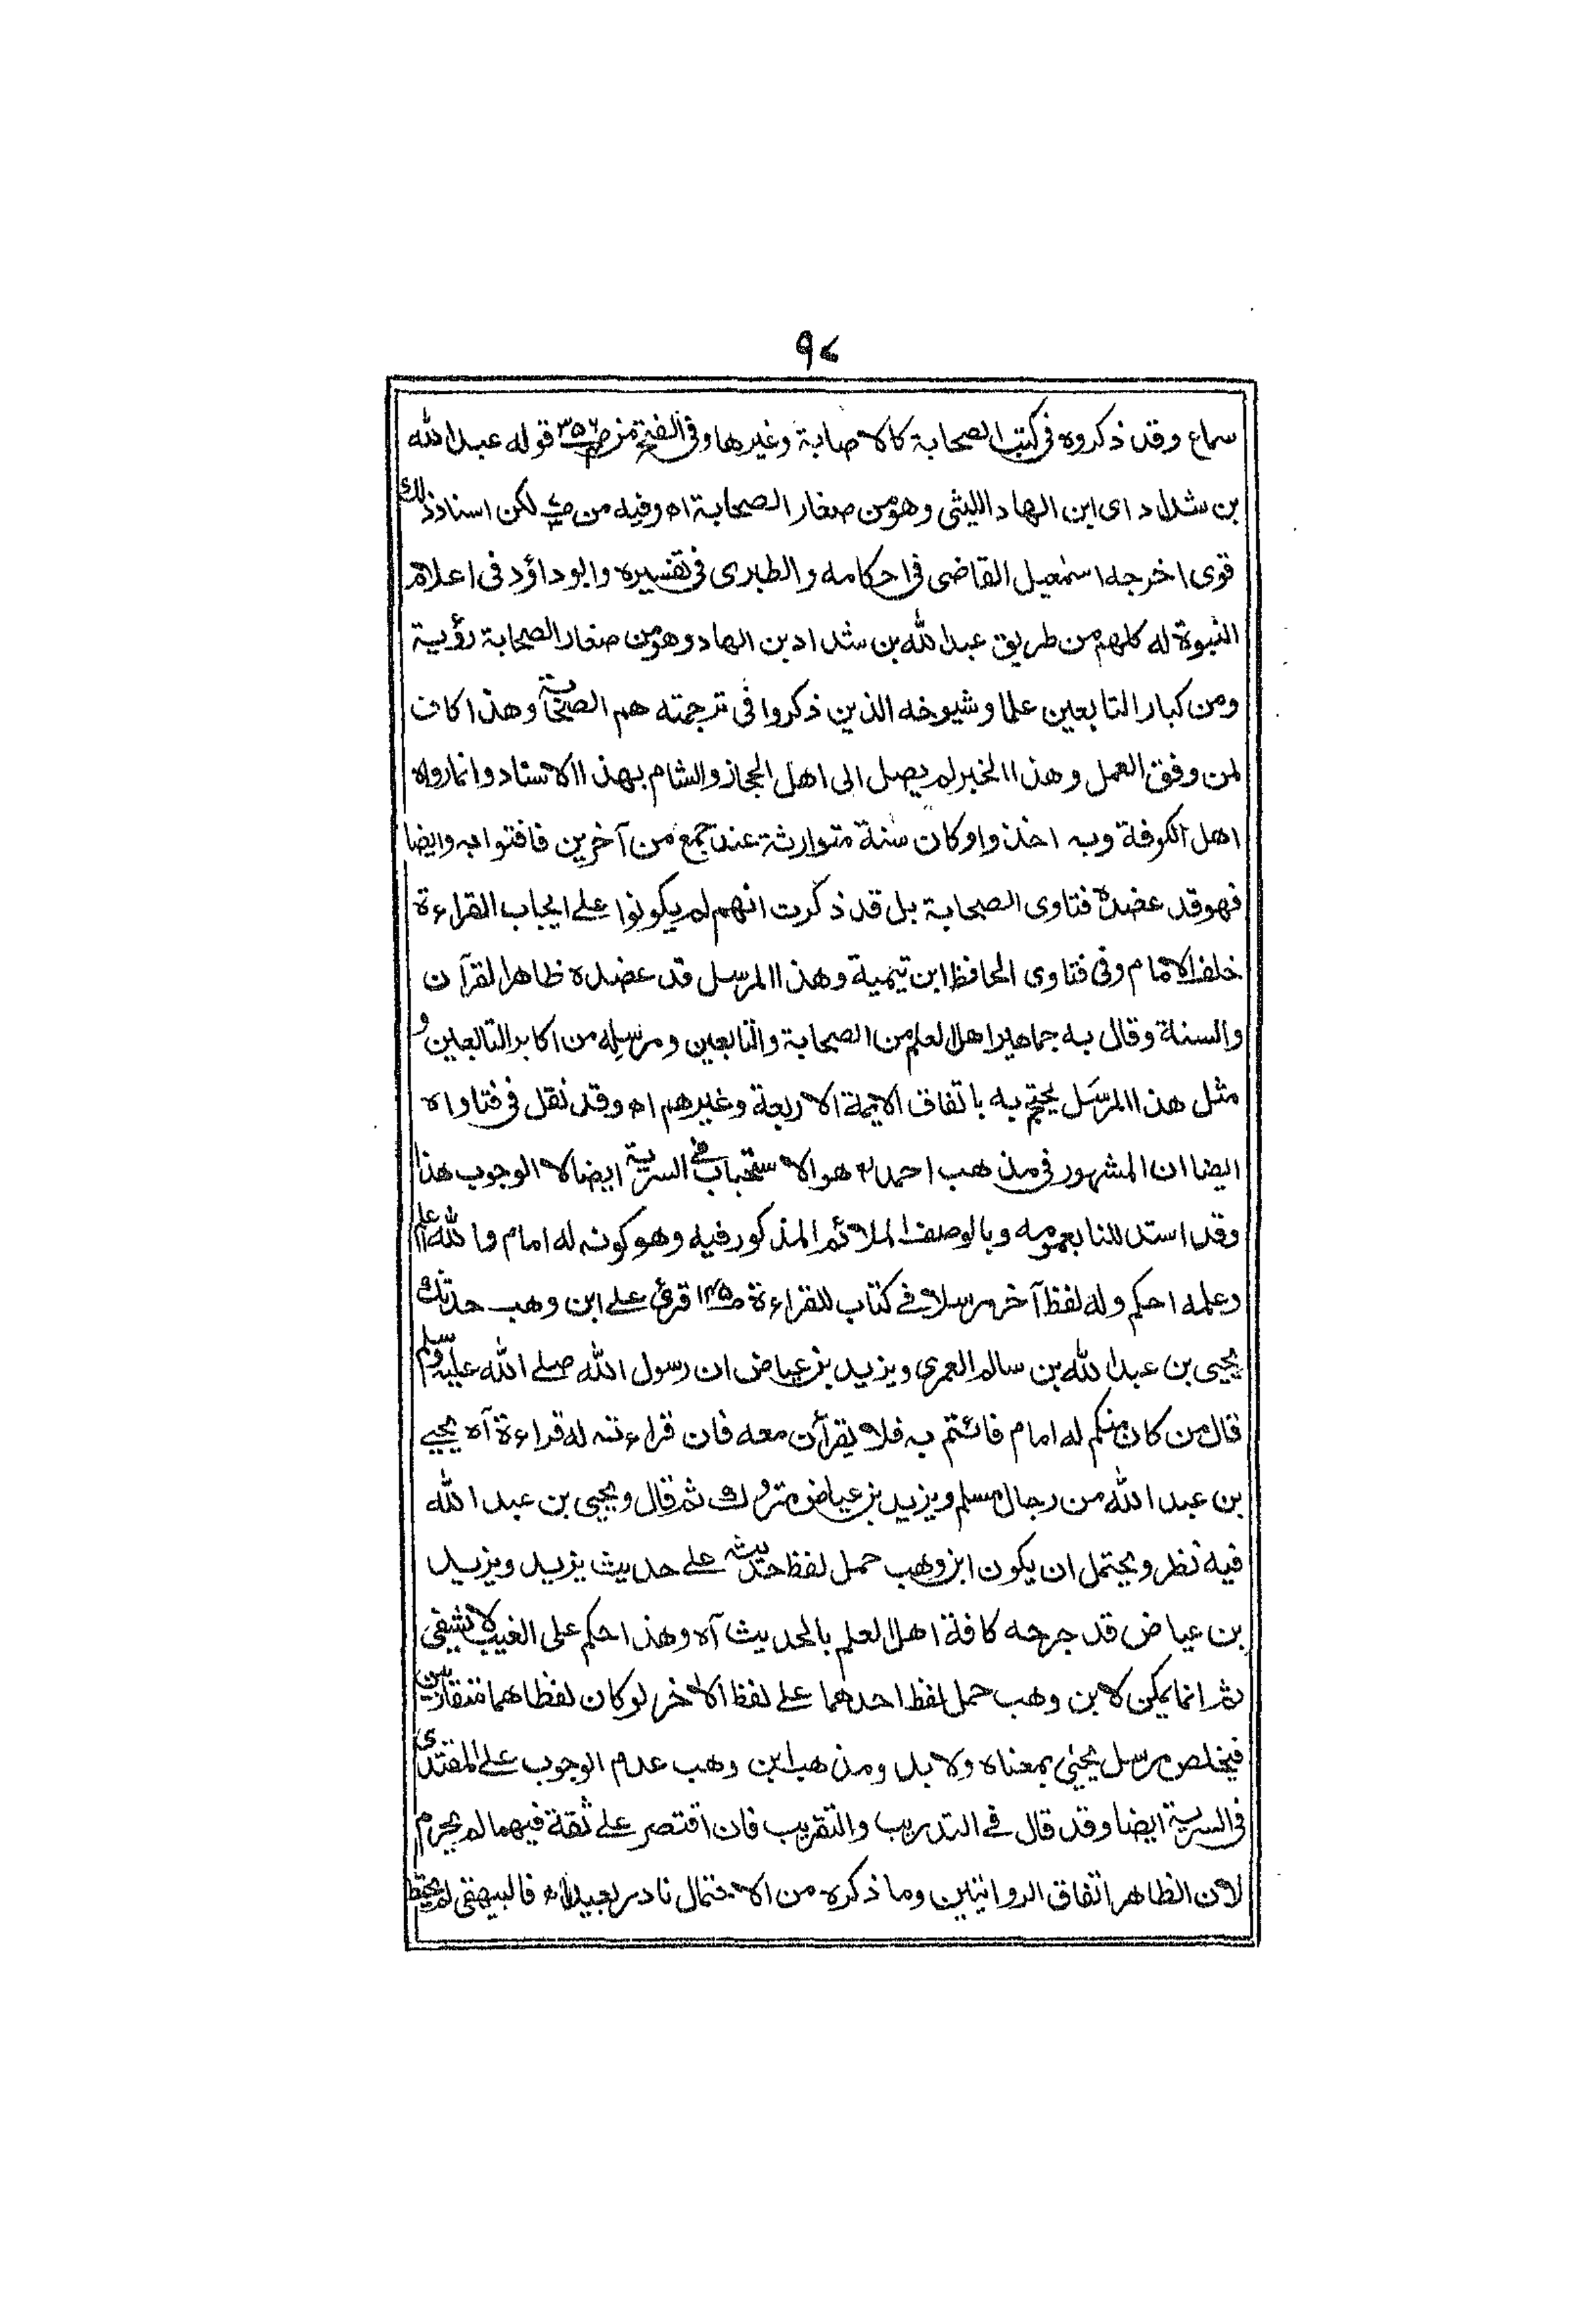 ٩٧
سماع وقد ذكروه فى كتب الصحابة كالاصابة وغيرها وفى الفتح من ص٣٥٦ قوله عبد الله
بن شداد اى ابن الهاد الليثى وهو من صغار الصحابة اه وفيه من لكن اسناد ذلك
قوى اخرجه اسمٰعيل القاضى فى احكامه والطبرى فى تفسيره وابو داؤد فى اعلام
النبوة له كلهم من طريق عبد الله بن شداد بن الهاد وهو من صغار الصحابة رؤية
ومن كبار التابعين علما وشيوخه الذين ذكروا فى ترجمته هم الصحابة وهذا كاف
لمن وفق العمل وهذا الخبر لم يصل الى اهل الحجاز والشام بهذا الاسناد وانما رواه
اهل الكوفة وبه اخذوا وكان سنة متوارثة عند جمع من آخرين فافتوا به وايضا
فهو قد عضده فتاوى الصحابة بل قد ذكرت انهم لم يكونوا على ايجاب القراءة
خلف الامام وفى فتاوى الحافظ ابن تيمية وهذا المرسل قد عضده ظاهر القرآن
والسنة وقال به جماهير اهل العلم من الصحابة والتابعين ومرسله من اكابر التابعين و
مثل هذا المرسل يحتج به باتفاق الائمة الاربعة وغيرهم اه وقد نقل فى فتاواه
ايضا ان المشهور فى مذهب احمد هو الاستحباب فى السرية ايضا لا الوجوب هذا
وقد استدللنا بعمومه وبالوصف الملائم المذكور فيه وهو كونه له امام والله اعلم
وعلمه احكم وله لفظ آخر مرسلا فى كتاب للقراءة ص١٢٥ قرئ على ابن وهب حدثك
يحيى بن عبد الله بن سالم العمرى ويزيد بن عياض ان رسول الله صلى الله عليه وسلم
قال من كان منكم له امام فائتم به فلا يقرأن معه فان قراءته له قراءة آه يحيى
بن عبد الله من رجال مسلم ويزيد بن عياض متروك ثم قال ويحيى بن عبد الله
فيه نظر ويحتمل ان يكون ابن وهب حمل لفظ حديثه على حديث يزيد ويزيد
بن عياض قد جرحه كافة اهل العلم بالحديث آه وهذا حكم على الغيب لا يشفى
ثم انما يمكن لابن وهب حمل لفظ احدهما على لفظ الآخر لو كان لفظاهما متقاربين
فيخلص مرسل يحيٰى بمعناه ولا بد ومذهب ابن وهب عدم الوجوب على المقتدى
فى السرية ايضا وقد قال فى التدريب والتقريب فان اقتصر على ثقة فيهما لم يحرم
لان الظاهر اتفاق الروايتين وما ذكره من الاحتمال نادر بعيد اه فالبيهقى لم يحتط